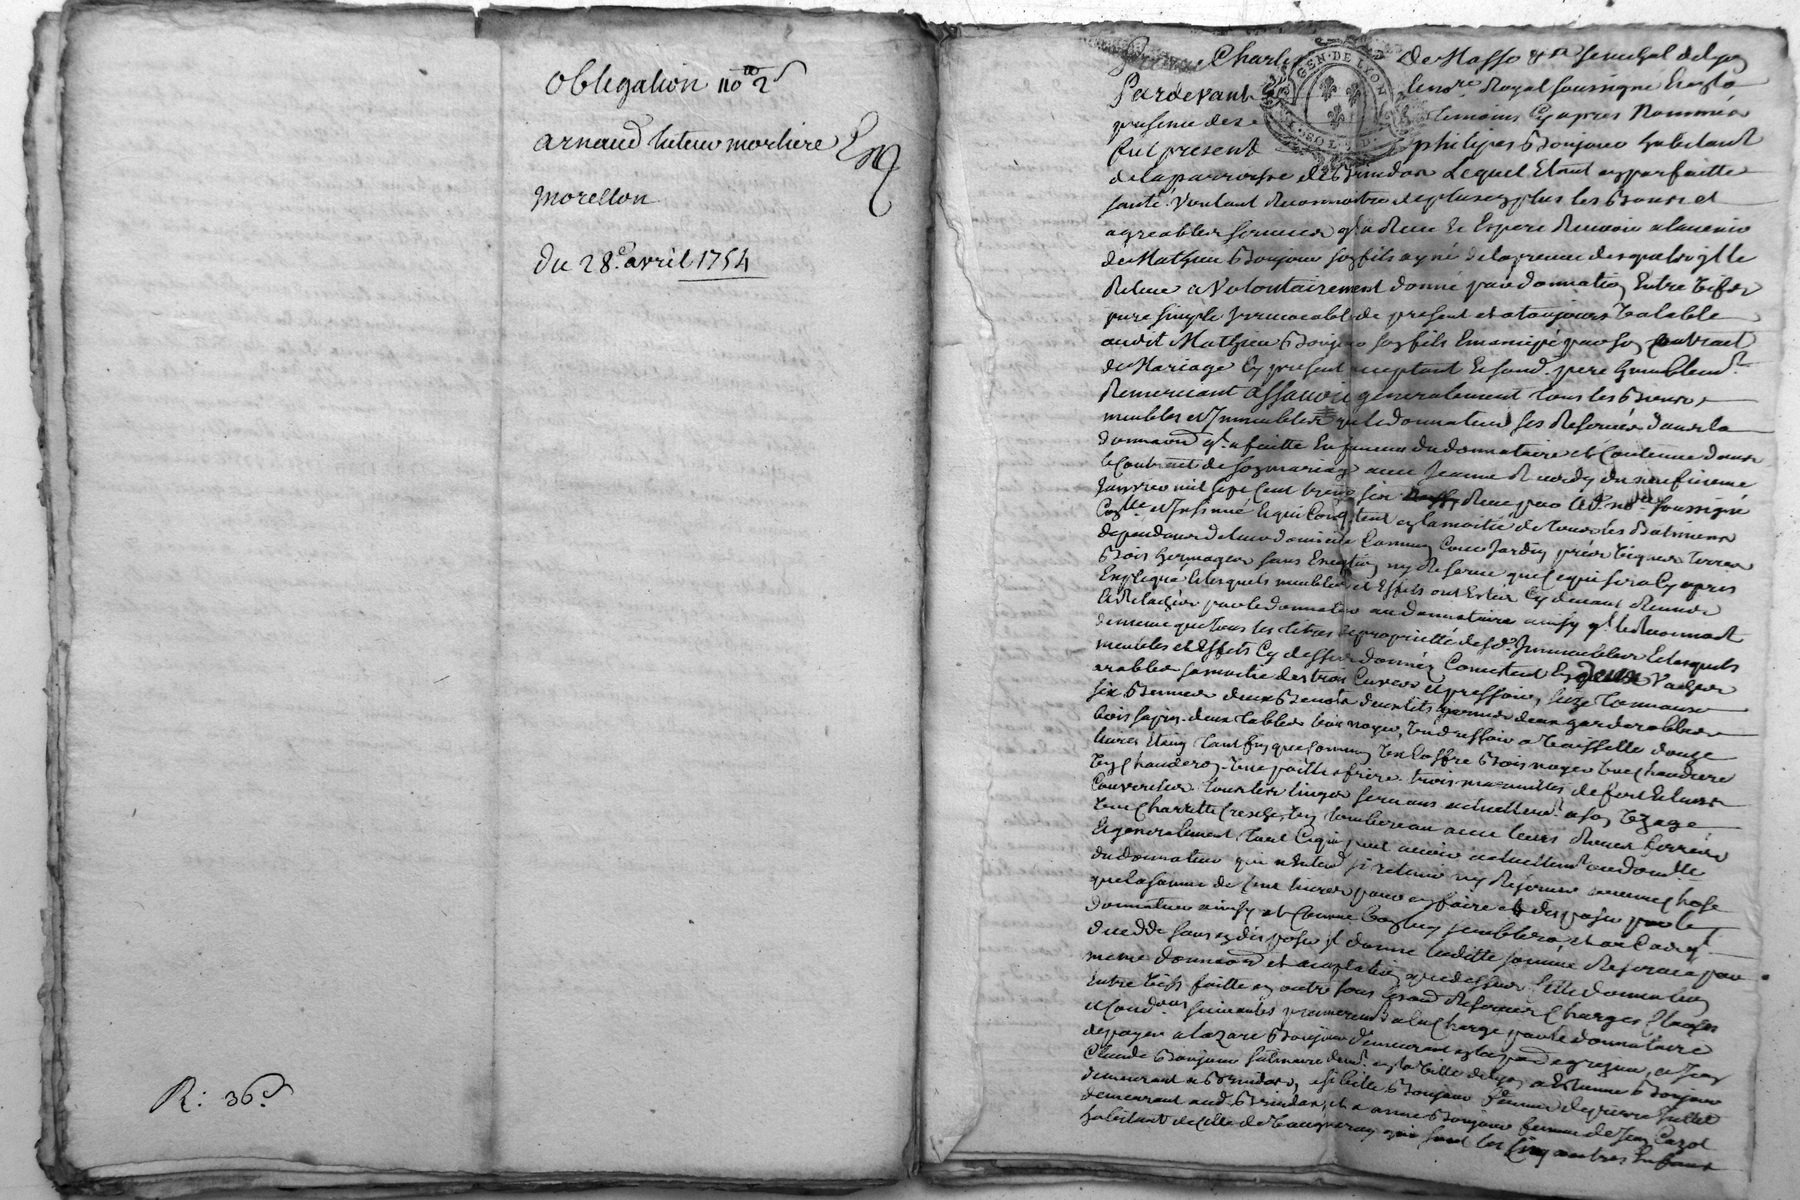 obligation no^re 2^d
arnaud tuteur morliere
morellon
du 28.^e avril 1754
R: 36^s
GEN. DE LYON
SOL
Charles De Masse senechal de Lyon
Pardevant Le no.^re Royal soussigné En la
presence des temoins Cyapres Nommés
fut present philipes Bonjour habitant
de la parroisse de Brindas Lequel Etant en parfaitte
santé voulant Reconnoitre de plus en plus les Bons et
agreables services qu'il a Receu Et Espere Recevoir a lavenir
de Mathieu Bonjour son fils ayné de la preuve desquels il le
Releve a volontairement donné par donnation Entre vifs
pure simple Irrevocable de present et a toujours valable
audit Mathieu Bonjour son fils Emancipé par son Contrat
de Mariage Cy present acceptant Et sond. pere humblem.^t
Remerciant assavoir generalement tous les Biens
meubles et Immeubles que le donnateur ses Reservés dans la
donnaon q.^l a faitte En faveur du donnataire et Contenue dans
le Contract de son mariage avec Jeanne du neufvieme
Janvier mil sept Cent trente six Receu par le no.^re soussigné
et Insinué Et qui Consistent en la moitié de tous les Batimens
dependans de leur domicile Commun Cour Jardin prés vignes terres
Bois hermages sans Exception ny Reserve que Ce qui sera Cy apres
Expliqué Lesquels meubles et Effets ont Estés Cy devant Remis
Et Relachés par le donnateur au donnataire ainsy q.^l le Reconnoit
de meme que tous les titres de proprietté desd. Immeubles Et lesquels
meubles et Effets Cy dessus donnés Consistent En deux Vaches
arables la moitié des trois Cuves et pressoir, seze tonneaux
six Bennes deux Benots deux lits garnis deux garderobbes
bois sapin deux tables bois noyer, un dressoir a vaisselle douze
livres Etaing tant fin que Commun un Coffre Bois noyer une Chaudiere
un Chauderon une poille a frire trois marmittes de fert Et leurs
Couvercles tous les linges servans actuellem.^t a son uzage
une Charrette un tombereau avec leurs Roues ferrées
Et generalement tout Ce qui peut avoir actuellem.^t au domicille
du donnateur qui n'Entend s'y retenir ny Reserver aucune Chose
que la somme de Cent livres pour en faire et disposer par le
donnateur ainsy et Comme bon luy semblera, et au Cas q.^l
deceddé sans en disposer il donne laditte somme Reservée par
meme donnaon et acceptation que dessus Cette donnation
Entre vifs faitte en outre sous lesd. Reserves Charges Clauses
et Cond.^ons suivantes premierem.^t a la Charge par le donnataire
de payer a Lazare Bonjour demeurant en la par.^sse de grezieu, a Jean
Claude Bonjour demt. en la ville de Lyon a Estienne Bonjour
demeurant a Brindas, a sibille Bonjour femme de pierre
demeurant aud. Brindas, et a anne Bonjour femme de Jean
habitant de Celle de Vaugneray qui sont les Cinq autres Enfans